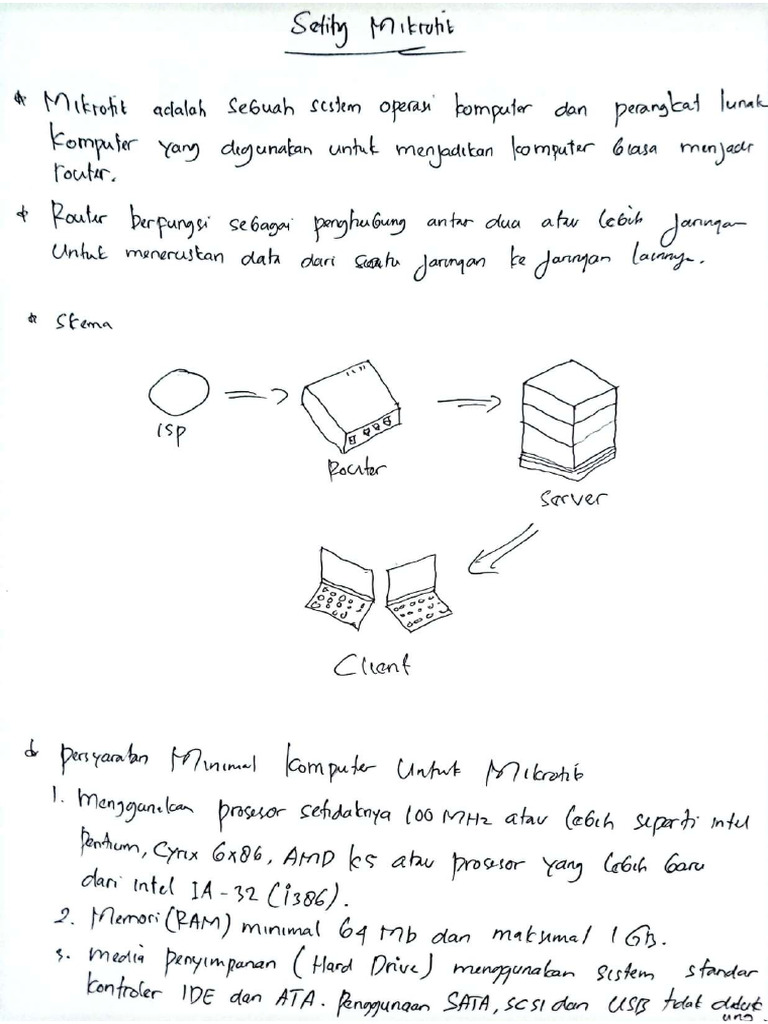 Setting Mikrotik
* Mikrotik adalah sebuah sistem operasi komputer dan perangkat lunak
komputer yang digunakan untuk menjadikan komputer biasa menjadi
router.
* Router berfungsi sebagai penghubung antar dua atau lebih jaringan
Untuk meneruskan data dari suatu jaringan ke jaringan lainnya.
* Skema
ISP
Router
Server
Client
* Persyaratan Minimal komputer Untuk Mikrotik
1. Menggunakan prosesor setidaknya 100 MHz atau lebih seperti intel
Pentium, Cyrix 6x86, AMD K5 atau prosesor yang lebih baru
dari intel IA-32 (i386).
2. Memori (RAM) minimal 64 Mb dan maksimal 1 GB.
3. media penyimpanan (Hard Drive) menggunakan sistem standar
kontroler IDE dan ATA. Penggunaan SATA, SCSI dan USB tidak diduk
ung.